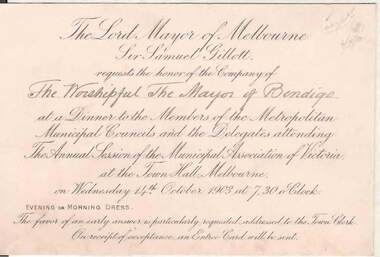 The Lord Mayor of Melbourne
Sir Samuel Gillott.
requests the honor of the Company of
The Worshipful The Mayor of Bendigo
at a Dinner to the Members of the Metropolitan
Municipal Councils and the Delegates attending
The Annual Session of the Municipal Association of Victoria,
at the Town Hall, Melbourne,
on Wednesday 14th October 1903 at 7.30 o'Clock.
EVENING OR MORNING DRESS.
The favor of an early answer is particularly requested, addressed to the Town Clerk.
On receipt of acceptance, an Entrée Card will be sent.